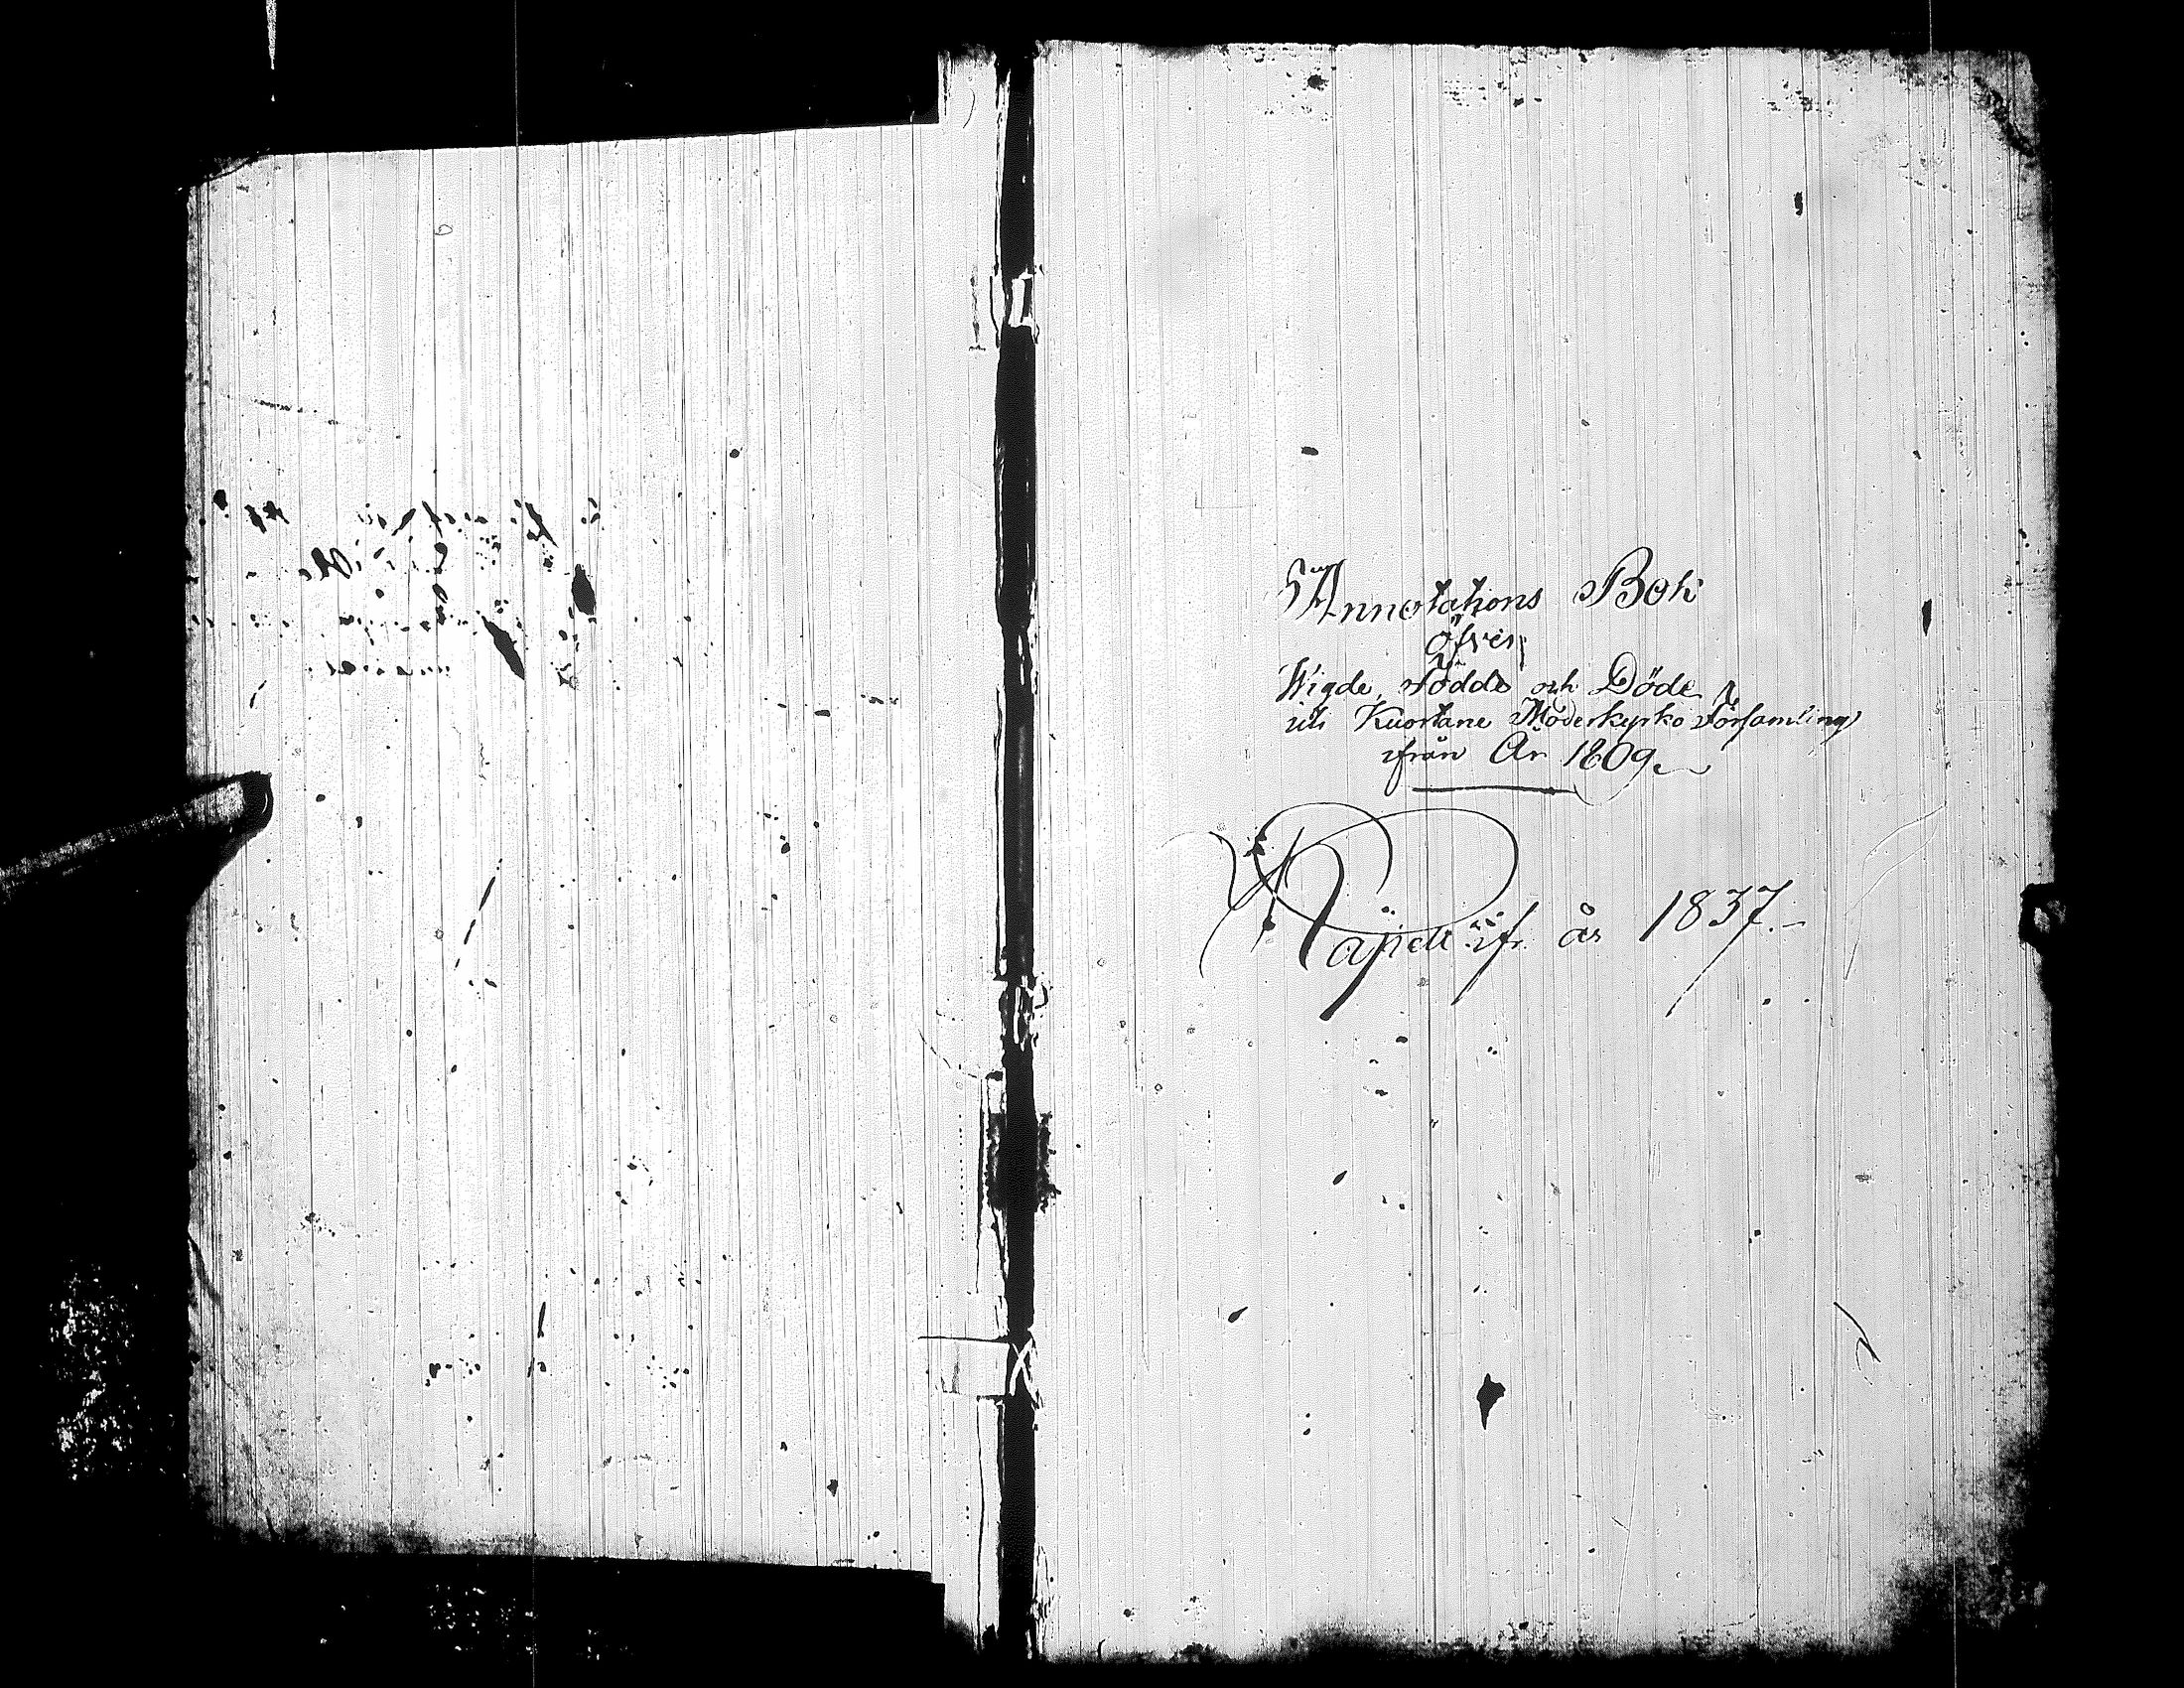 Annotations Bok
öfver
Wigde, Födde och Döde
uti Kuortane Moderkyrko Församling
ifrån År 1809.
ifr. år 1837.